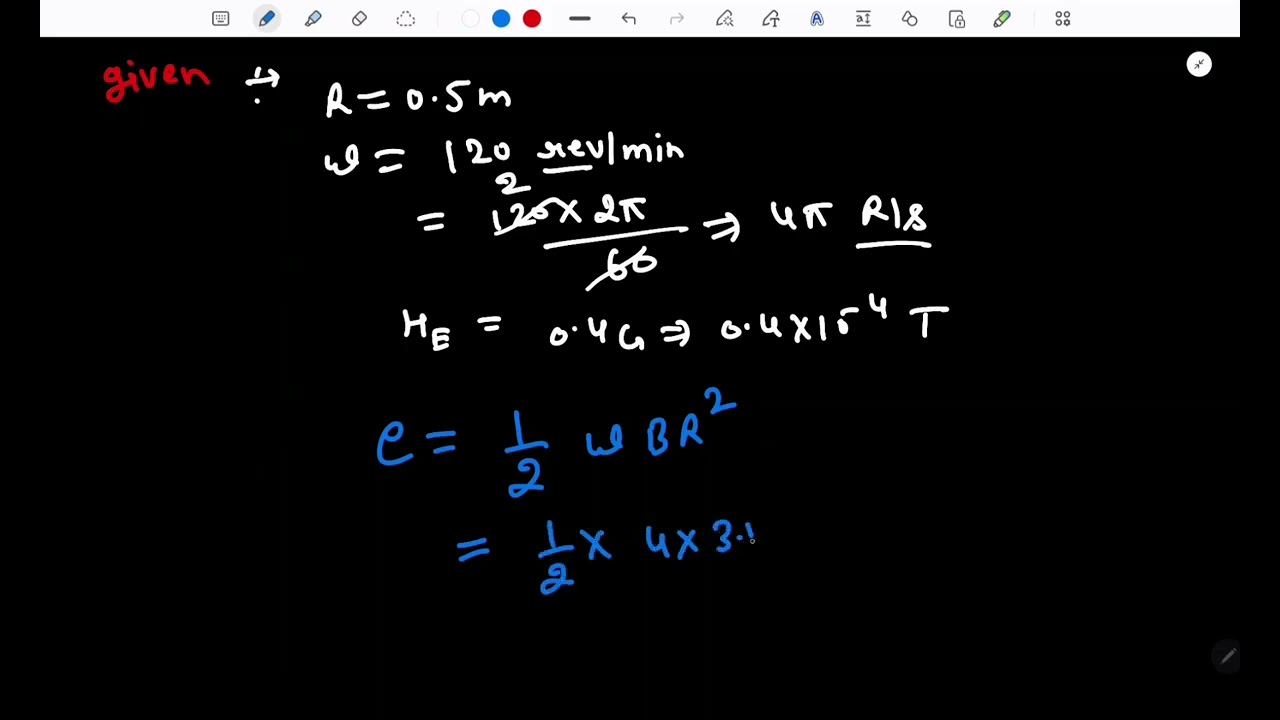 given ÷→
R = 0.5 m
ω = 120 rev/min
= 120 × 2π / 60 ⇒ 4π R/s
2
H_E = 0.4 G ⇒ 0.4 × 10⁻⁴ T
e = 1/2 ω B R²
= 1/2 × 4 × 3.1